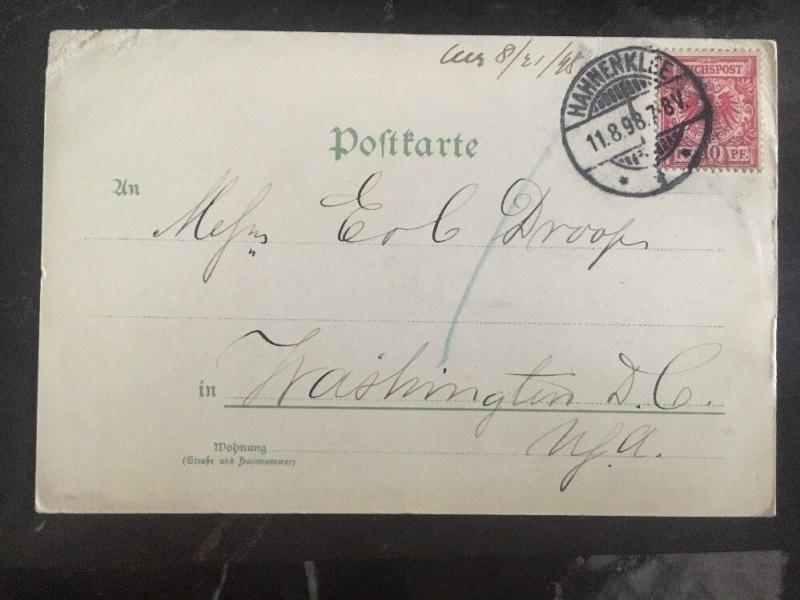 8/21/98
REICHSPOST
10 PF.
HAHNENKLEE
11.8.98.7-8V.
Postkarte
An
Messrs E & C Droop
in Washington D.C.
U.S.A.
Wohnung
(Straße und Hausnummer)